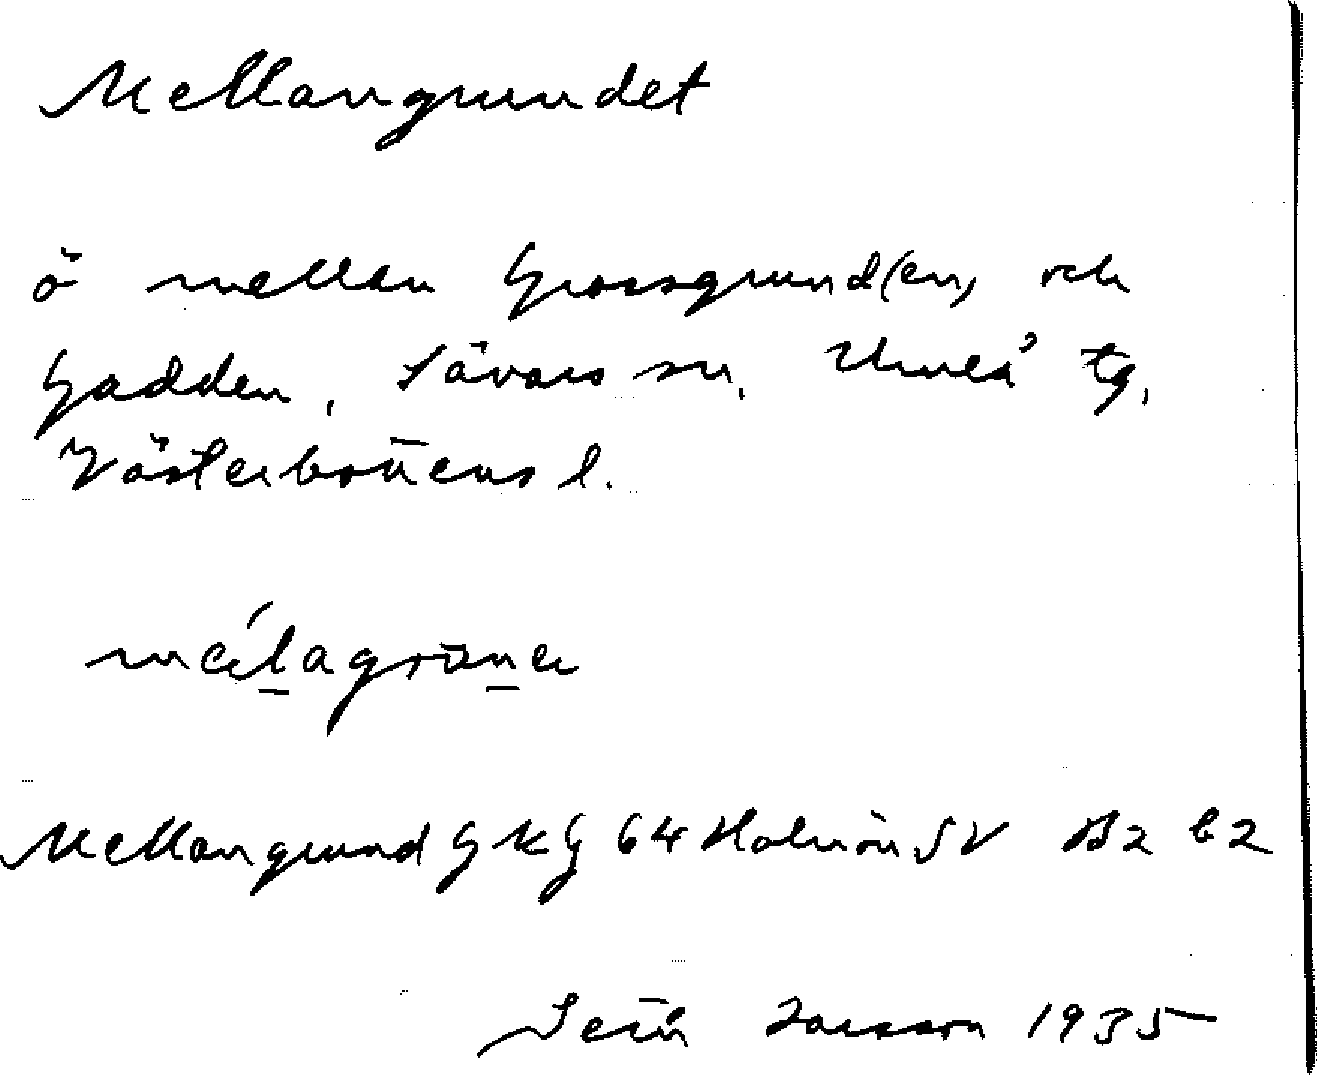 Mellangrundet
ö mellan Grossgrund(en) och
Gadden, Sävars sn, Umeå tg,
Västerbottens l.
Mellangrund GKG 64 Holmön SV B2 b2
Larsson 1935